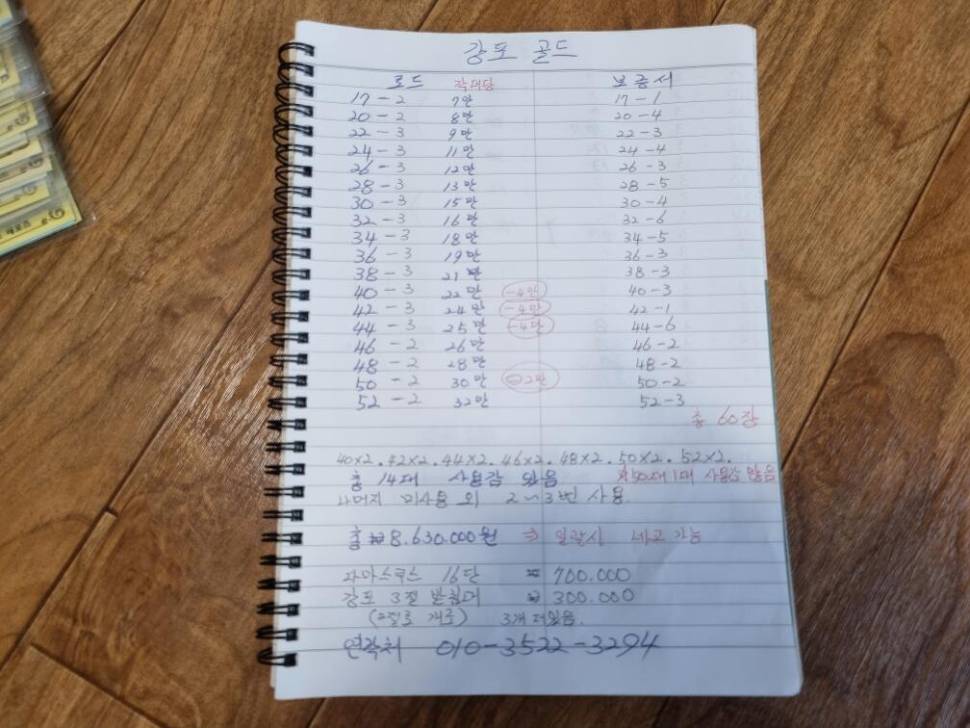 강포 골드
로드 각대당 보증서
17-2 7만 17-1
20-2 8만 20-4
22-3 9만 22-3
24-3 11만 24-4
26-3 12만 26-3
28-3 13만 28-5
30-3 15만 30-4
32-3 16만 32-6
34-3 18만 34-5
36-3 19만 36-3
38-3 21만 38-3
40-3 22만 -4만 40-3
42-3 24만 -4만 42-1
44-3 25만 -4만 44-6
46-2 26만 46-2
48-2 28만 48-2
50-2 30만 -2만 50-2
52-2 32만 52-3
총 60장
40×2. 42×2. 44×2. 46×2. 48×2. 50×2. 52×2.
총 14대 사용감 있음 50대 1대 사용감 많음
나머지 미사용 외 2~3번 사용
총 8.630.000원 ⇒ 일괄시 네고가능
다마스쿠스 16단 = 700.000
강포 3절 받침대 300.000
(2절로 개조) 3개 더있음.
연락처 010-3522-3294